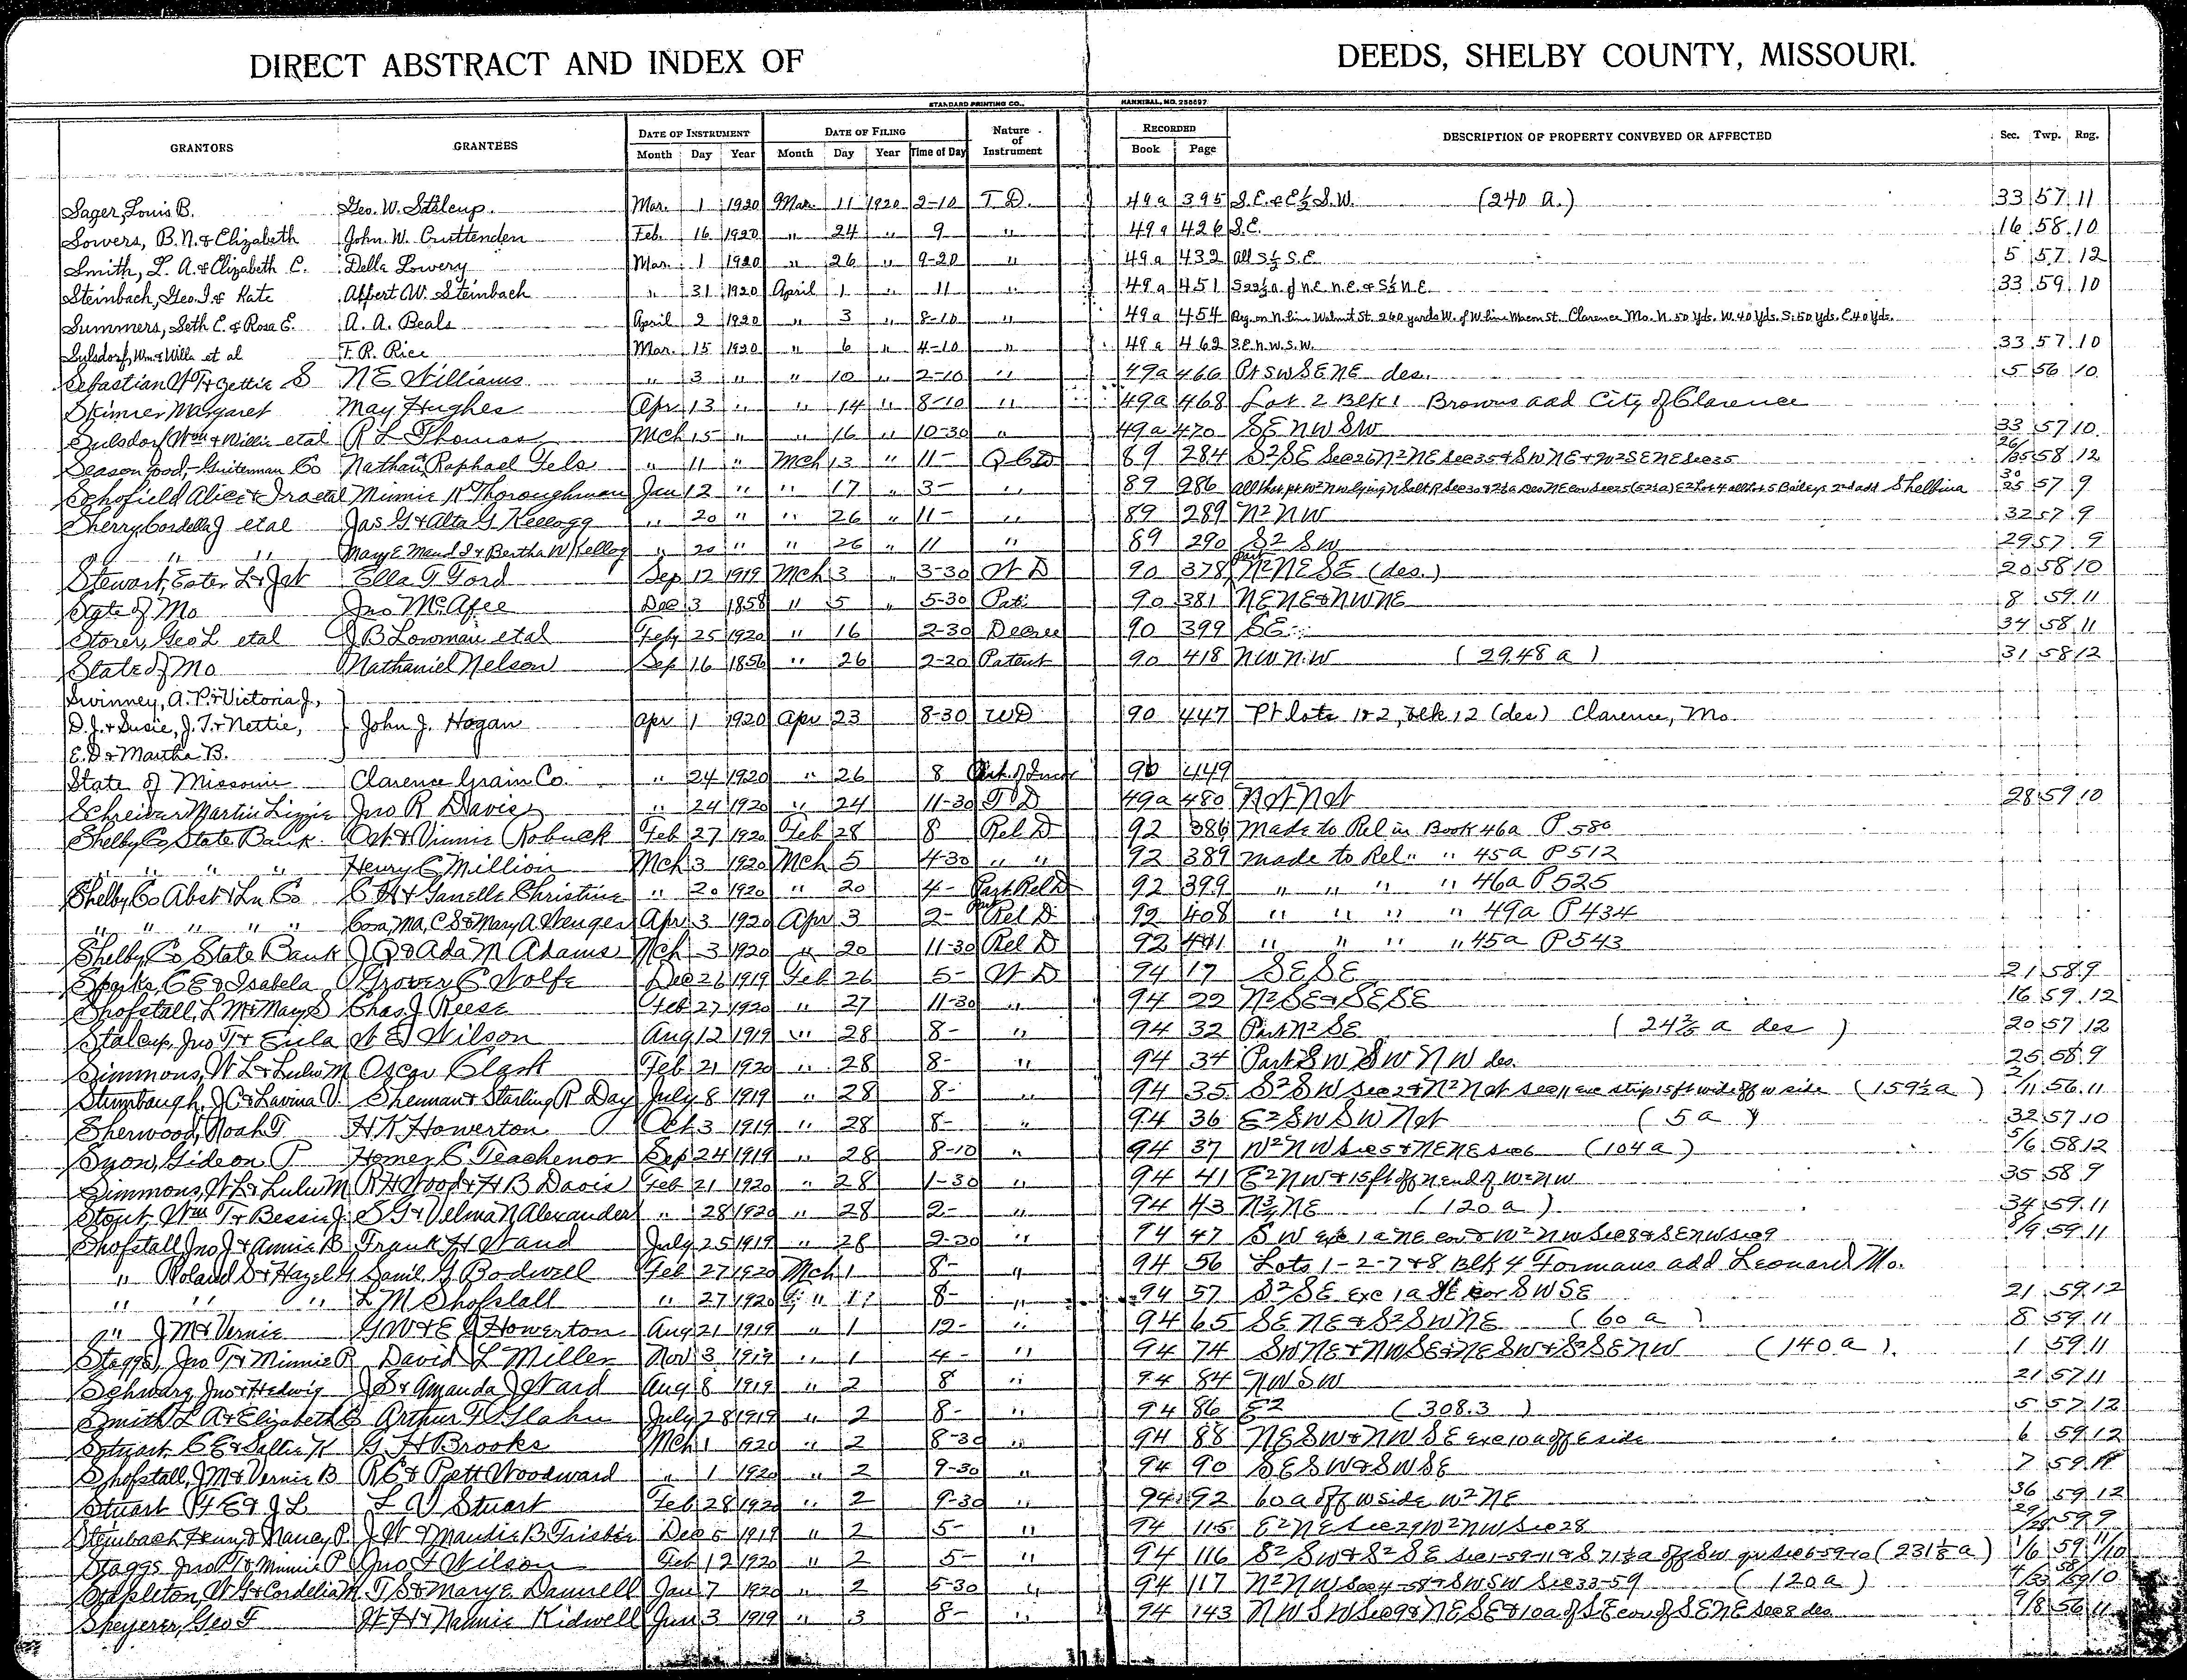 DIRECT ABSTRACT AND INDEX OF DEEDS, SHELBY COUNTY, MISSOURI.
STANDARD PRINTING CO., HANNIBAL, MO. 256697
GRANTORS GRANTEES DATE OF INSTRUMENT DATE OF FILING Nature of Instrument RECORDED DESCRIPTION OF PROPERTY CONVEYED OR AFFECTED Sec. Twp. Rng.
Month Day Year Month Day Year Time of Day Book Page
Sager, Louis B. Geo. W. Stalcup. Mar. 1 1920 Mar. 11 1920 2-10 T.D. 49a 395 S.E. & E½ S.W. (240 a.) 33 57 11
Sowers, B.N. & Elizabeth John. W. Cruttenden Feb. 16 1920 " 24 " 9 " 49a 426 S.E. 16 58 10
Smith, L. A. & Elizabeth C. Della Lowery Mar. 1 1920 " 26 " 9-20 " 49a 432 All S½ S.E. 5 57 12
Steinbach, Geo. I. & Kate Albert W. Steinbach " 31 1920 April 1 " 11 " 49a 451 N.E. N.E. & S½ N.E. 33 59 10
Summers, Seth C. & Rosa E. A. A. Beals April 2 1920 " 3 " 8-10 " 49a 454 Beg. on N. line Walnut St. 260 yards W. of W. line Macon St. Clarence Mo. N. 50 Yds. W. 40 Yds. S. 50 Yds. E. 40 Yds.
Sulsdorf, Wm & Willa et al F. R. Rice Mar. 15 1920 " 6 " 4-10 " 49a 462 S.E. N.W. S.W. 33 57 10
Sebastian W T & Gettie S N E Williams " 3 " " 10 " 2-10 " 49a 466 Pt SW SE NE des. 5 56 10
Skinner Margaret May Hughes Apr 13 " " 14 " 8-10 " 49a 468 Lot 2 Blk 1 Browns add City of Clarence
Sulsdorf Wm & Willie etal R L Thomas Mch 15 " " 16 " 10-30 " 49a 470 SE NW SW 33 57 10
Seasongood, Guiterman Co Nathan & Raphael Fels " 11 " Mch 13 " 11- Q C D 89 284 S²SE Sec 26 N²NE Sec 35 & SW NE & W²SE NE Sec 35 26/35 58 12
Schofield Alice & Ira etal Minnie K Thoroughman Jan 12 " " 17 " 3- " 89 286 Shelbina 30/25 57 9
Sherry Cordella J etal Jas G & Alta G Kellogg " 20 " " 26 " 11- " 89 289 N² NW 32 57 9
" " " Mary E Maud I & Bertha W Kellogg " 20 " " 26 " 11 " 89 290 S² SW 29 57 9
Stewart, Ester L & Jet Ella T Ford Sep 12 1919 Mch 3 " 3-30 W D 90 378 Part N²NE SE (des.) 20 58 10
State of Mo Jno McAfee Dec 3 1858 " 5 " 5-30 Pat. 90 381 NE NE & NW NE 8 59 11
Storer, Geo L etal J B Lowman etal Feby 25 1920 " 16 2-30 Decree 90 399 SE 34 58 11
State of Mo Nathaniel Nelson Sep 16 1856 " 26 2-20 Patent 90 418 NW NW (29.48 a) 31 58 12
Swinney, A. P. & Victoria J.,
D. J. & Susie, J. T. & Nettie, John J. Hogan Apr 1 1920 Apr 23 8-30 W D 90 447 Pt lots 1 & 2, Blk 12 (des) Clarence, Mo.
E. D. & Martha B.
State of Missouri Clarence Grain Co. " 24 1920 " 26 8 90 449
Schreiver Martin Lizzie Jno R Davis " 24 1920 " 24 11-30 T D 49a 480 Not Not 28 59 10
Shelby Co State Bank Oct & Vinnie Robuck Feb 27 1920 Feb 28 8 Rel D 92 386 Made to Rel in Book 46a P 580
" " " " Henry C Million Mch 3 1920 Mch 5 4-30 " " 92 389 made to Rel " " 45a P 512
Shelby Co Abst & Ln Co C H & Janella Christine " 20 1920 " 20 4- Part Rel D 92 399 " " " " 46a P 525
" " " " " Cora, Ma, C S & Mary A Wenger Apr 3 1920 Apr 3 2- Part Rel D 92 408 " " " " 49a P 434
Shelby Co State Bank J Q & Ada M Adams Mch 3 1920 " 20 11-30 Rel D 92 441 " " " " 45a P 543
Sparks, C E & Isabela Grover C Wolfe Dec 26 1919 Feb 26 5- W D 94 17 SE SE 21 58 9
Shofstall, L M & May S Chas J Reese Feb 27 1920 " 27 11-30 " 94 22 N²SE & SE SE 16 59 12
Stalcup, Jno T & Eula W E Wilson Aug 12 1919 " 28 8- " 94 32 Part N² SE (24⅖ a des) 20 57 12
Simmons, W L & Lulu M Oscar Clark Feb 21 1920 " 28 8- " 94 34 Part SW SW NW des. 25 58 9
Stumbaugh, J C & Lavina V. Sherman & Starling R Day July 8 1919 " 28 8- " 94 35 S² SW Sec 2 & N² N Sec 11 exc strip 15 ft wide off W side (159½ a) 2/11 56 11
Sherwood, Noah T H K Howerton Oct 3 1919 " 28 8- " 94 36 E² SW SW Not (5 a) 32 57 10
Syon, Gideon P Homer C Teachenor Sep 24 1919 " 28 8-10 " 94 37 W² NW Sec 5 & NE NE Sec 6 (104 a) 5/6 58 12
Simmons, W L & Lulu M R H Wood & H B Davis Feb 21 1920 " 28 1-30 " 94 41 E² NW & 15 ft off N end of W² NW 35 58 9
Stout, Wm T & Bessie J. S G & Velma N Alexander " 28 1920 " 28 2- " 94 43 N¾ NE (120 a) 34 59 11
Shofstall Jno J & Annie B Frank H Wand July 25 1919 " 28 2-30 " 94 47 SW exc 1 a NE cor & W² NW Sec 8 & SE NW Sec 9 8/9 59 11
" Roland S & Hazel G Saml G Bodwell Feb 27 1920 Mch 1 8- " 94 56 Lots 1-2-7 & 8 Blk 4 Formans add Leonard Mo.
" " " L M Shofstall " 27 1920 " 1 8- " 94 57 S²SE exc 1 a SE cor SW SE 21 59 12
" J M & Vernie G W & E J Howerton Aug 21 1919 " 1 12- " 94 65 SE NE & S² SW NE (60 a) 8 59 11
Staggs, Jno T & Minnie P. David L Miller Nov 3 1919 " 1 4- " 94 74 SW NE & NW SE & NE SW & S² SE NW (140 a) 1 59 11
Schwarz, Jno & Hedwig J S & Amanda J Ward Aug 8 1919 " 2 8 " 94 84 NW SW 21 57 11
Smith L A & Elizabeth C Arthur F Glahn July 28 1919 " 2 8- " 94 86 E2 (308.3) 5 57 12
Stuart, C E & Sallie H G H Brooks Mch 1 1920 " 2 8-30 " 94 88 NE SW & NW SE exc 10 a off E side 6 59 12
Shofstall, J M & Vernie B R C & Pett Woodward " 1 1920 " 2 9-30 " 94 90 SE SW & SW SE 7 59 11
Stuart H E & J L L V Stuart Feb 28 1920 " 2 9-30 " 94 92 60 a off W side W² NE 36 59 12
Steinbach Henry & Nancy P. J W & Maudie B Frisbie Dec 5 1919 " 2 5- " 94 115 E² NE Sec 29 W² NW Sec 28 29/28 59 9
Staggs Jno T & Minnie P Jno F Wilson Feb 12 1920 " 2 5- " 94 116 S² SW & S² SE Sec 1-59-11 & S 71⅕ a off SW qr Sec 6-59-10 (231⅕ a) 1/6 59 11/10
Stapleton, W G & Cordelia M. T S & Mary E Damrell Jan 7 1920 " 2 5-30 " 94 117 N² NW Sec 4-58 & SW SW Sec 33-59 (120 a) 4/33 58/59 10
Speyerer, Geo F W H & Nannie Kidwell Jun 3 1919 " 3 8- " 94 143 NW SW Sec 9 & NE SE & 10 a of SE cor of SE NE Sec 8 des 9/8 56 11